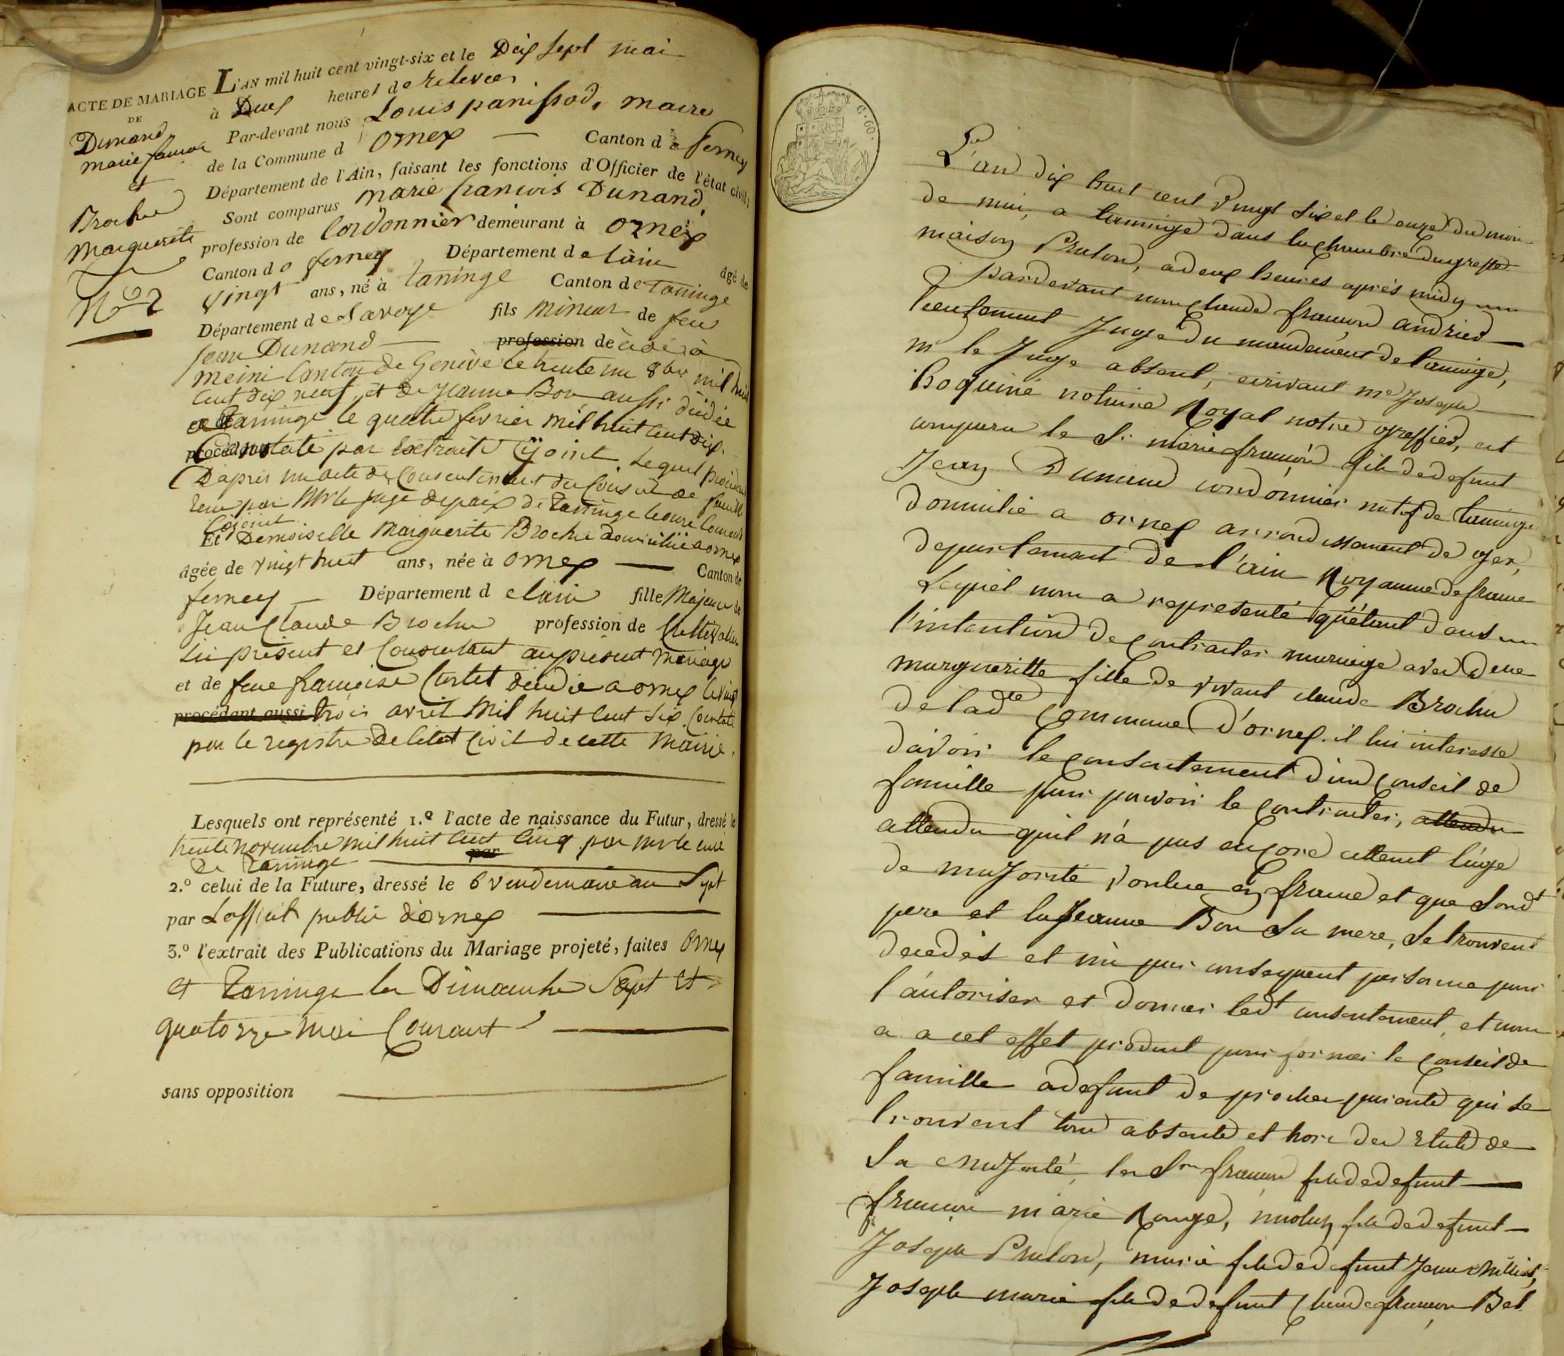 ACTE DE MARIAGE
DE
Dunand
Marie françois
et
Brochu
Marguerite
N.º 2
L'AN mil huit cent vingt-six et le Dix Sept mai
à Deux heures de relevée
Par-devant nous Louis panissod, maire
de la Commune d'Ornex Canton de ferney
Département de l'Ain, faisant les fonctions d'Officier de l'état civil,
Sont comparus Marie francois Dunand,
profession de Cordonnier demeurant à Ornex
Canton de ferney Département de lain âgé de
vingt ans, né à Taninge Canton de Taninge
Département de Savoye fils mineur de feu
Jean Dunand profession de décédé à
Meini Canton de Genève le trente un 8bre mil huit
Cent dix neuf, et de Jeanne Bon aussi décédée
a Taninge le quatre fevrier mil huit Cent dix
procédant Constaté par Extraits Cijoint, lequel procédant
D'après un acte de Consentement du Conseil de famille
tenu par Mr le juge de paix de Taninge le onze Courant
Cijoint
Et Demoiselle Marguerite Brochu domiciliée a ornex
agée de vingt huit ans, née à Ornex Canton de
ferney Département de lain fille Majeure de
Jean Claude Brochu profession de Cultivateur
ici présent et Consentant au présent Mariage
et de feue françoise décédée a ornex le vingt
procédant aussi trois avril mil huit Cent Six Constaté
par le registre de l'état Civil de cette Mairie.
Lesquels ont représenté 1.º l'acte de naissance du Futur, dressé le
trente novembre mil huit Cent Cinq par Mr le curé
par
de Taninge
2.º celui de la Future, dressé le 6 vendemaire an Sept
par L'officier public d'ornex
3.º l'extrait des Publications du Mariage projeté, faites Ornex
et Taninge les Dimanche Sept et
quatorze mai Courant
sans opposition
L'an dix huit cent vingt six et le onze du mois
de mai, a taninge dans la chambre du greffe
maison Prulon, a deux heures après midy
pardevant nous claude françois andrier
lieutenant Juge du mandement de taninge,
mr le Juge absent, ecrivant me Joseph
notaire Royal notre greffier, est
comparu le Sr marie françois fils de defunt
Jean Dunand cordonnier natif de taninge
domicilié a ornex arrondissement de gex,
departement de l'ain Royaume de france
Lequel nous a representé qu'étant dans
l'intention de contracter mariage avec dlle
margueritte fille de vivant claude Brochu
de ladte Commune d'ornex. il lui interesse
d'avoir le consentement d'un Conseil de
famille pour pouvoir le contracter, attendu
attendu qu'il n'a pas encore atteint l'age
de majorité voulue en france et que Sondt
pere et la Jeanne Bon Sa mere, Se trouvent
decedés et n'a par consequent personne pour
l'autoriser et donner ledt consentement, et nous
a a cet effet produit pour former le Conseil de
famille a defaut de proches parents qui se
trouvent tous absents et hors des Etats de
Sa Majesté, les Srs françois fils de defunt
françois marie Rouge, nicolas fils de defunt
Joseph Prulon, marie fils de defunt Jean
Joseph marie fils de defunt Claude françois Bel